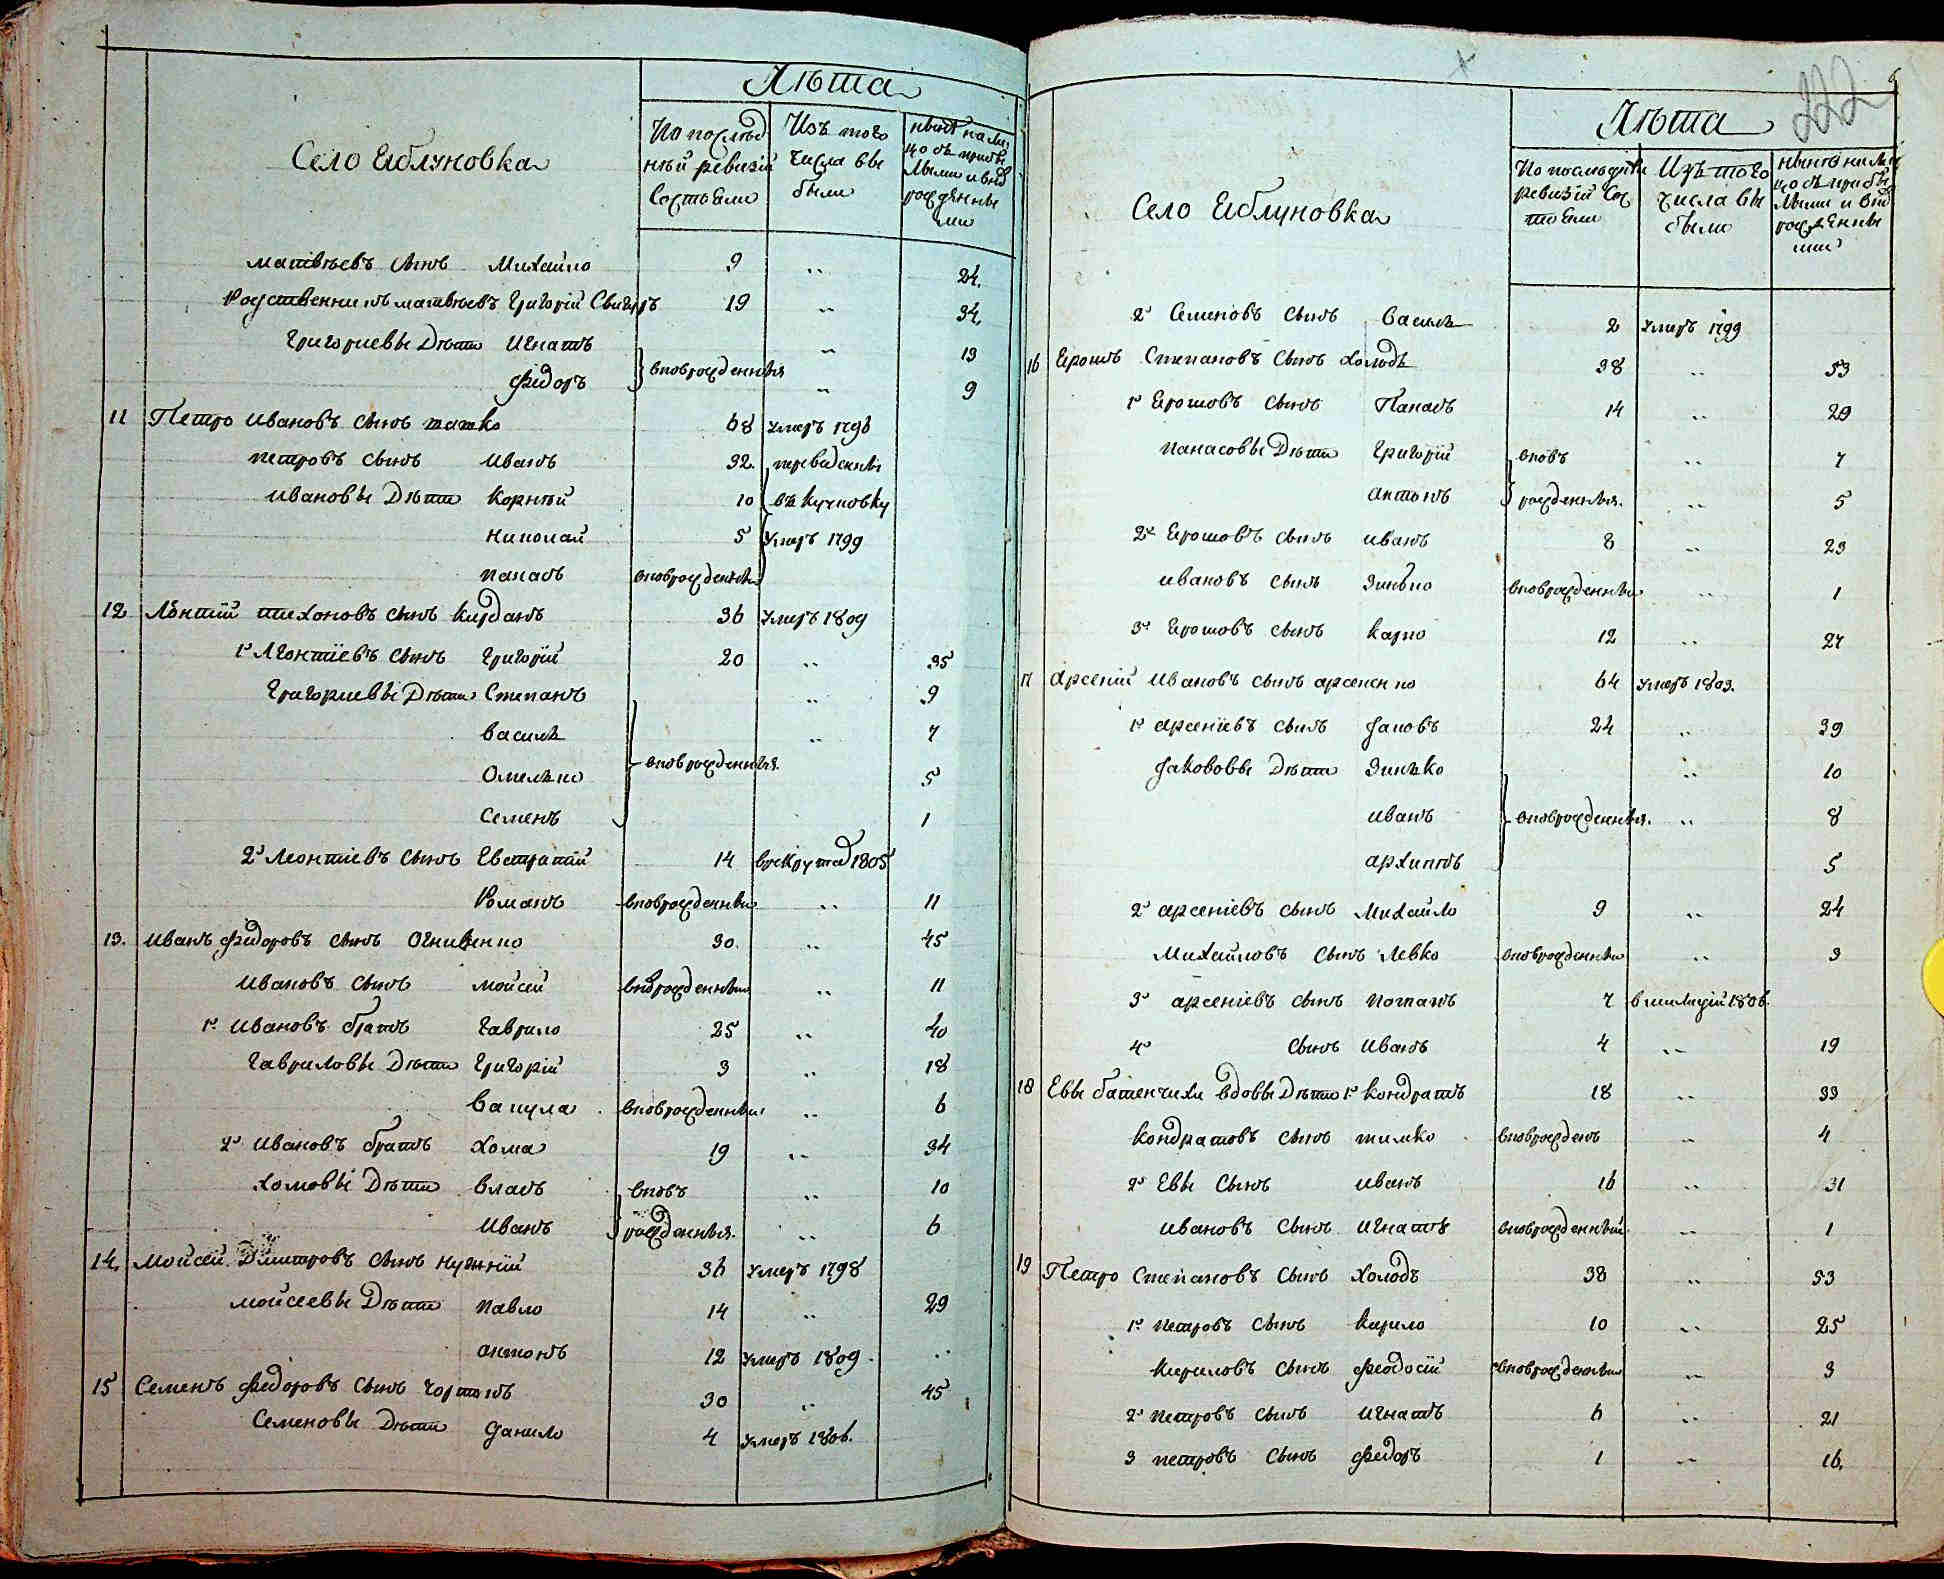 Лѣта
Село Яблуновка
По послѣд
нѣй ревизіи
Состояли
Изъ того
числа вы
были
нынѣ на ли
цо съ прибы
лыми и внов
рожденны
ми
Матвѣевъ сынъ Михайло 9 " 24.
Родственникъ матвѣевъ Григорій 19 " 34.
Григориевы Дѣти Игнатъ " 13
Федоръ } вновърожденныя " 9
11 Петро Ивановъ сынъ 68 умеръ 1796
петровъ сынъ Иванъ 32. переведены
Ивановы Дѣти Корнѣй 10 въ Кучковку
Николай 5 умеръ 1799
панасъ вноврожденны
12 Лѣонтій тихоновъ сынъ Кирданъ 36 умеръ 1809
1й Леонтіевъ сынъ Григорій 20 " 35
Григориевы Дѣти Степанъ " 9
Василь " 7
Омелько } вноврожденныя. 5
Семенъ 1
2й Леонтіевъ сынъ Евстратій 14 врекрута 1805
Романъ вноврожденны " 11
13. Иванъ федоровъ сынъ Огниенко 30. " 45
Ивановъ сынъ мойсей вноврожденны " 11
1й Ивановъ братъ Гаврило 25 " 40
Гавриловы Дѣти Григорій 3 " 18
Вакула вноврожденны " 6
2й Ивановъ братъ Хома 19 " 34
Хомовы Дѣти Власъ вновъ " 10
Иванъ } рожденныя. " 6
14. Мойсей Дмитровъ сынъ 36 умеръ 1798
Мойсеевы Дѣти павло 14 " 29
антонъ 12 умеръ 1809. "
15 Семенъ федоровъ сынъ 30 " 45
Семеновы Дѣти Данило 4 умеръ 1806.
222
Лѣта
Село Яблуновка
По послѣдней
ревизіи Сос
тояли
Изъ того
числа вы
были
нынѣ на ли
цо съ прибы
лыми и внов
рожденны
ми
2й Семеновъ сынъ Василь 2 умеръ 1799
16 Ярошъ Степановъ сынъ Холодъ 38 " 53
1й Ярошовъ сынъ Панасъ 14 " 29
Панасовы Дѣти Григорій вновъ " 7
антонъ } рожденныя. " 5
2й Ярошовъ сынъ иванъ 8 " 23
ивановъ сынъ Зинько вноврожденны " 1
3й Ярошовъ сынъ Карпо 12 " 27
17 Арсеній Ивановъ сынъ арсененко 64 умеръ 1803.
1й арсеніевъ сынъ Яковъ 24 " 39
Якововы Дѣти Зинько " 10
иванъ } вноврожденныя. " 8
архипъ 5
2й арсеніевъ сынъ Михайло 9 " 24
Михайловъ сынъ Левко вноврожденны " 3
3й арсеніевъ сынъ потапъ 7 в милиціи 1806.
4й сынъ Иванъ 4 " 19
18 Евы батенчихи вдовы Дѣти 1й Кондратъ 18 " 33
Кондратовъ сынъ тимко вноврожденъ " 4
2й Евы сынъ иванъ 16 " 31
ивановъ сынъ Игнатъ вноврожденный " 1
19 Петро Степановъ сынъ Холодъ 38 " 53
1й петровъ сынъ Кирило 10 " 25
Кириловъ сынъ феодосій вноврожденны " 3
2й петровъ сынъ Игнатъ 6 " 21
3 петровъ сынъ федоръ 1 " 16.